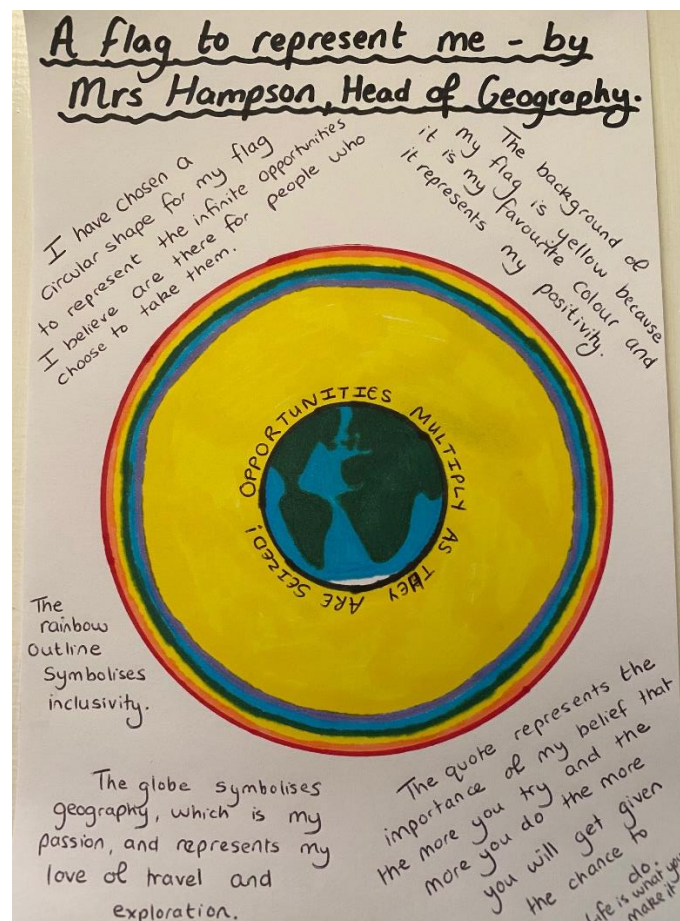 A flag to represent me - by
Mrs Hampson, Head of Geography.
I have chosen a
circular shape for my flag
to represent the infinite opportunities
I believe are there for people who
choose to take them.
The background of
my flag is yellow because
it is my favourite colour and
it represents my positivity.
OPPORTUNITIES MULTIPLY AS THEY ARE SEIZED!
The
rainbow
outline
Symbolises
inclusivity.
The globe symbolises
geography, which is my
passion, and represents my
love of travel and
exploration.
The quote represents the
importance of my belief that
the more you try and the
more you do the more
you will get given
the chance to
do.
Life is what you
make it